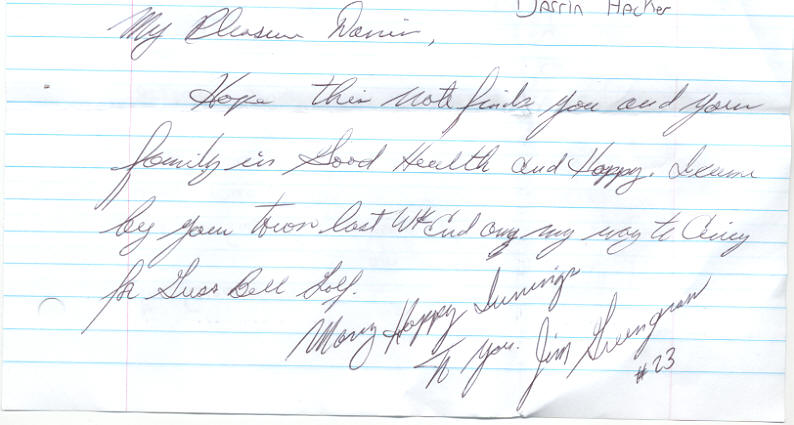 Darrin Hacker
My Pleasure Darrin,
Hope this note finds you and your
family in Good Health and Happy. I came
by your town last WKEnd ong my way to Cincy
for Guss Bell Golf.
Many Happy Innings
To you. Jim Greengrass
#23